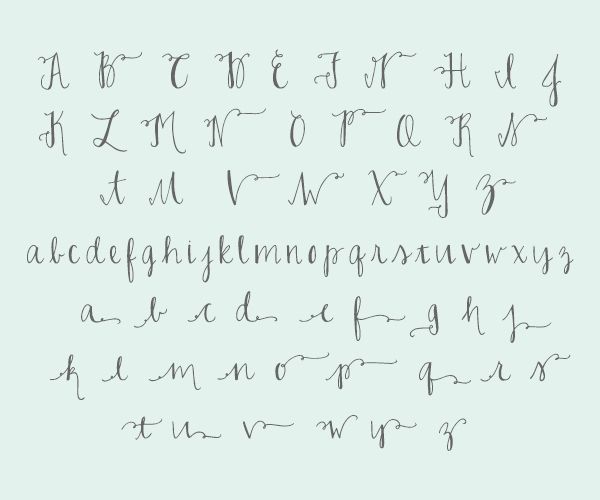 A B C D E F G H I J
K L M N O P Q R S
T U V W X Y Z
a b c d e f g h i j k l m n o p q r s t u v w x y z
a b c d e f g h j
k l m n o p q r s
t u v w y z